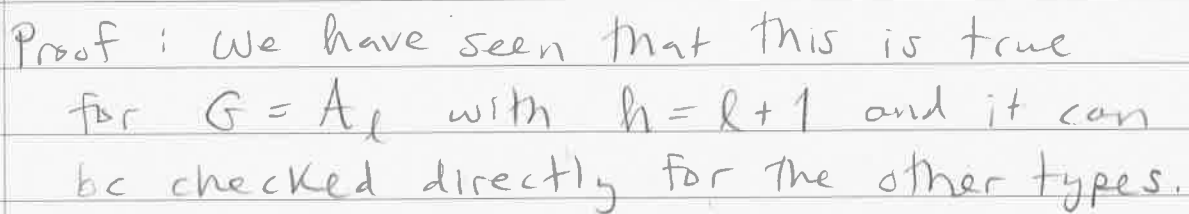 Proof : We have seen that this is true
for G = A_ℓ with h = ℓ + 1 and it can
be checked directly for the other types.